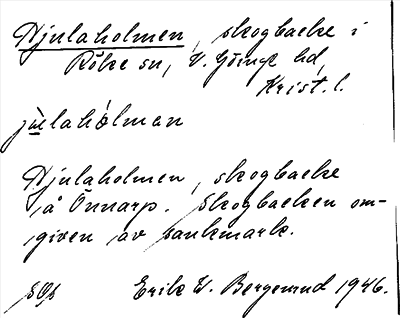 Hjulaholmen, skogbacke i
Röke sn, V. Göinge hd,
Krist. l.
jùlahòlman
Hjulaholmen, skogbacke
å Önnarp. Skogbacken om-
given av sankmark.
Erik W. Bergerund 1946.